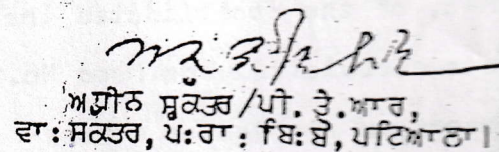 ਅਧੀਨ ਸਕੱਤਰ/ਪੀ. ਤੇ.ਆਰ,
ਵਾ: ਸਕਤਰ, ਪ:ਰਾ: ਬਿ:ਬੋ, ਪਟਿਆਲਾ।